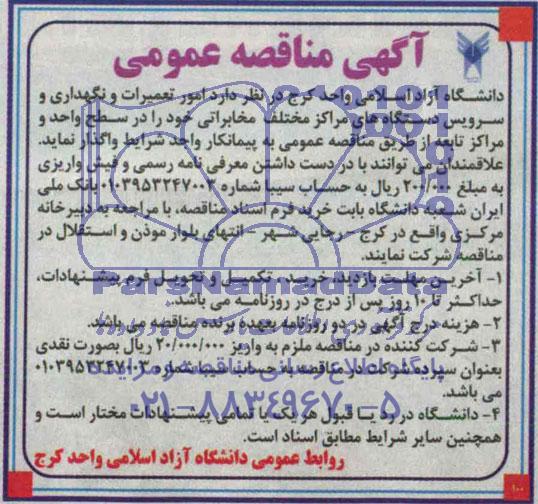 آگهی مناقصه عمومی
دانشگاه آزاد اسلامی واحد کرج در نظر دارد امور تعمیرات و نگهداری و
سرویس دستگاه های مراکز مختلف مخابراتی خود را در سطح واحد و
مراکز تابعه از طریق مناقصه عمومی به پیمانکار واجد شرایط واگذار نماید.
علاقمندان می توانند با در دست داشتن معرفی نامه رسمی و فیش واریزی
به مبلغ ۲۰۰/۰۰۰ ریال به حساب سیبا شماره ۰۱۰۳۹۵۳۲۴۷۰۰۳ بانک ملی
ایران شعبه دانشگاه بابت خرید فرم اسناد مناقصه، با مراجعه به دبیرخانه
مرکزی واقع در کرج -رجایی شهر - انتهای بلوار موذن و استقلال در
مناقصه شرکت نمایند.
۱- آخرین مهلت بازدید، خرید، تکمیل و تحویل فرم پیشنهادات،
حداکثر تا ۱۰ روز پس از درج در روزنامه می باشد.
۲- هزینه درج آگهی در دو روزنامه بعهده برنده مناقصه می باشد.
۳- شرکت کننده در مناقصه ملزم به واریز ۲۰/۰۰۰/۰۰۰ ریال بصورت نقدی
بعنوان سپرده شرکت در مناقصه به حساب سیبا شماره ۰۱۰۳۹۵۳۲۴۷۰۰۲
می باشد.
۴- دانشگاه در رد یا قبول هر یک یا تمامی پیشنهادات مختار است و
همچنین سایر شرایط مطابق اسناد است.
روابط عمومی دانشگاه آزاد اسلامی واحد کرج
۱۰۰
ParsNamadData
پایگاه اطلاع رسانی مناقصه و مزایده
۰۲۱-۸۸۳۴۹۶۷۰-۵